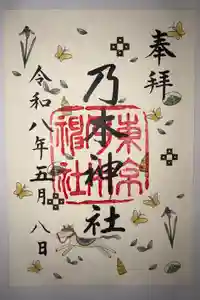 奉拝
乃木神社
東京乃木神社
令和八年五月八日